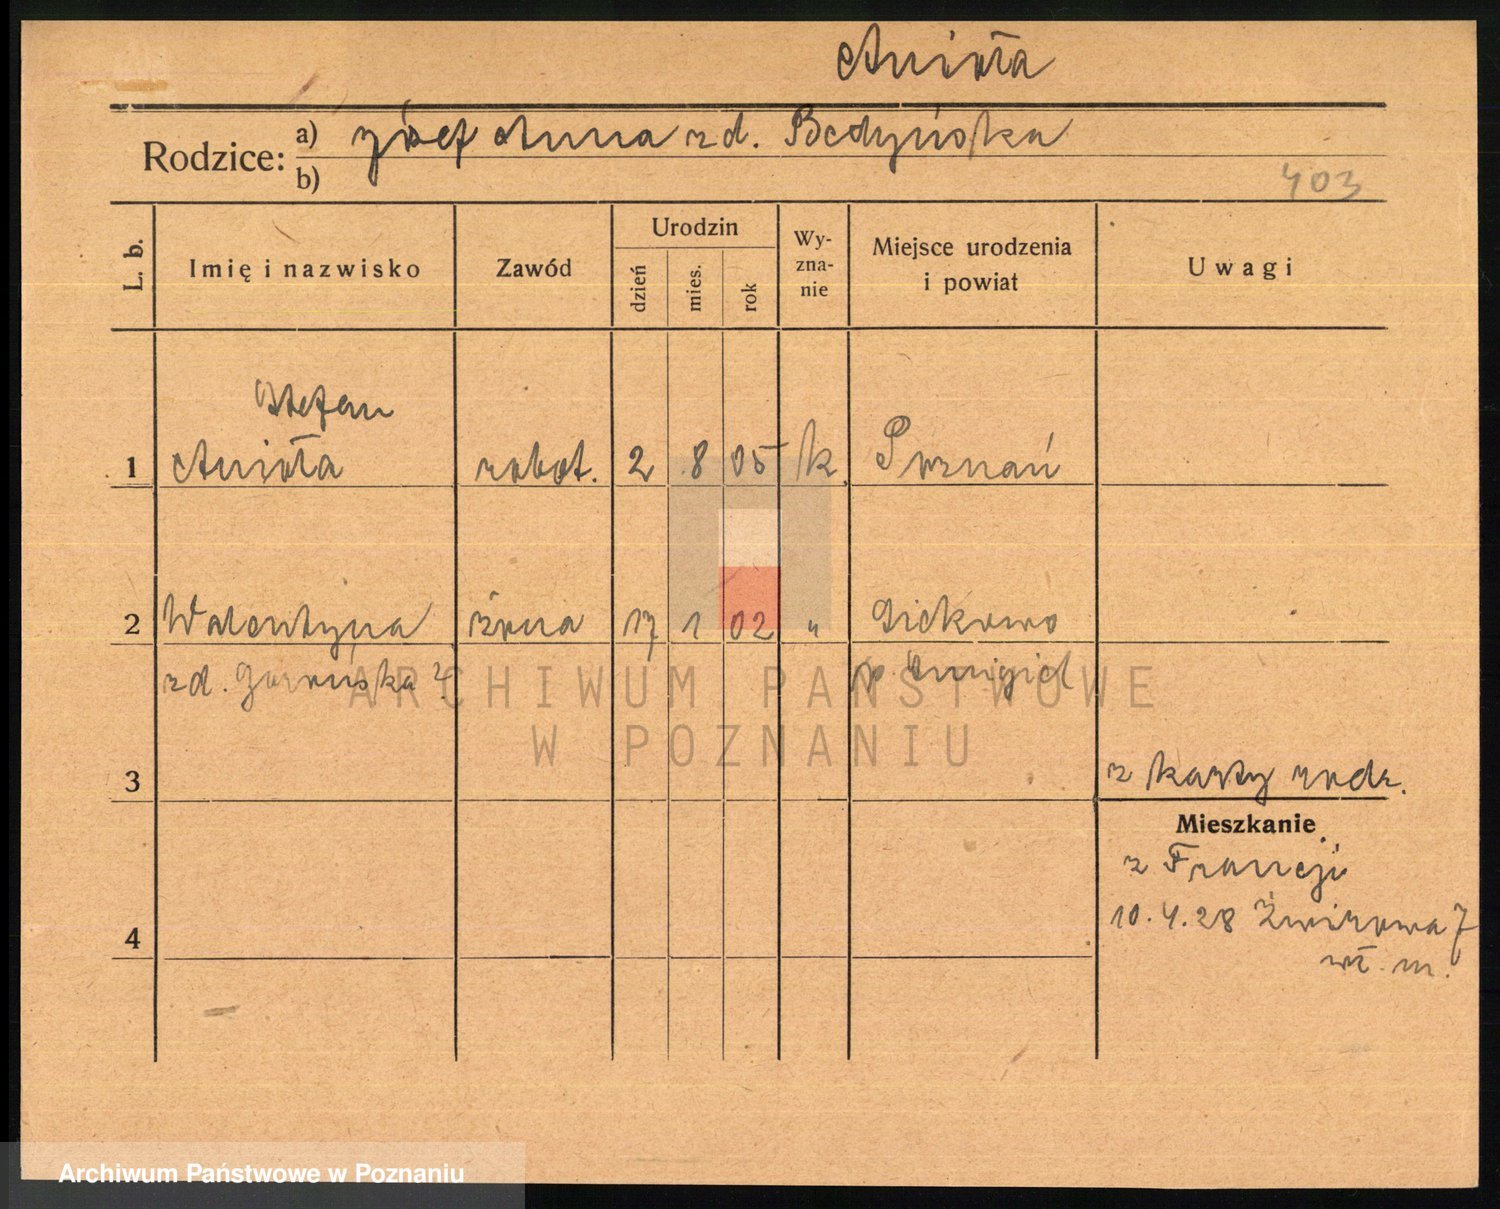 Anioła
Rodzice: a) Józef Anna zd. Bedyńska
b)
403
L. b. Imię i nazwisko Zawód Urodzin dzień mies. rok Wy-zna-nie Miejsce urodzenia i powiat Uwagi
Stefan
1 Anioła robot. 2 8 05 k. Poznań
2 Walentyna żona 17 1 02 "
zd. p. Śmigiel
ARCHIWUM PAŃSTWOWE
W POZNANIU
3 z karty rodz.
Mieszkanie
z Francji
4 10.4.28 Żwirowa 7
wł. m.
Archiwum Państwowe w Poznaniu